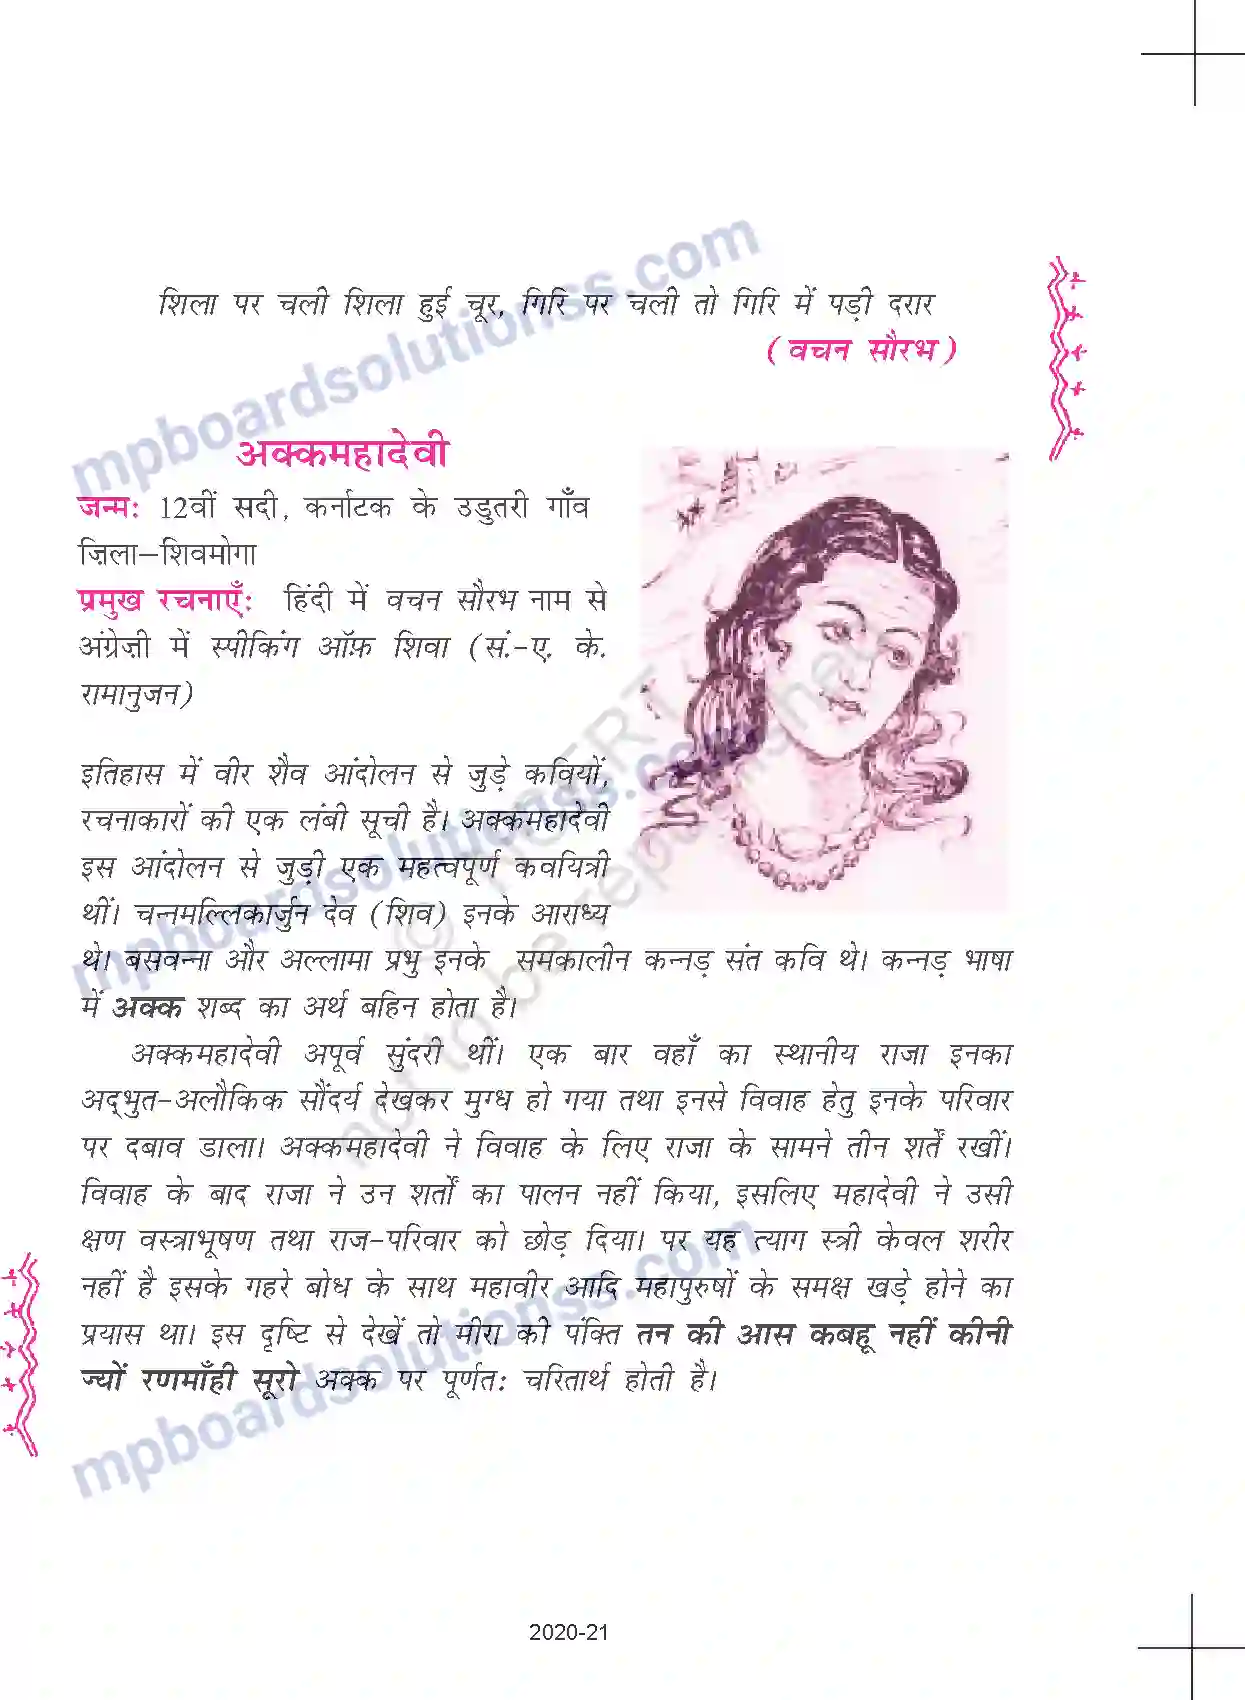 शिला पर चली शिला हुई चूर, गिरि पर चली तो गिरि में पड़ी दरार
(वचन सौरभ)
अक्कमहादेवी
जन्म: 12वीं सदी, कर्नाटक के उडुतरी गाँव
ज़िला–शिवमोगा
प्रमुख रचनाएँ: हिंदी में वचन सौरभ नाम से
अंग्रेज़ी में स्पीकिंग ऑफ़ शिवा (सं.-ए. के.
रामानुजन)
इतिहास में वीर शैव आंदोलन से जुड़े कवियों,
रचनाकारों की एक लंबी सूची है। अक्कमहादेवी
इस आंदोलन से जुड़ी एक महत्वपूर्ण कवयित्री
थीं। चन्नमल्लिकार्जुन देव (शिव) इनके आराध्य
थे। बसवन्ना और अल्लामा प्रभु इनके समकालीन कन्नड़ संत कवि थे। कन्नड़ भाषा
में अक्क शब्द का अर्थ बहिन होता है।
अक्कमहादेवी अपूर्व सुंदरी थीं। एक बार वहाँ का स्थानीय राजा इनका
अद्भुत-अलौकिक सौंदर्य देखकर मुग्ध हो गया तथा इनसे विवाह हेतु इनके परिवार
पर दबाव डाला। अक्कमहादेवी ने विवाह के लिए राजा के सामने तीन शर्तें रखीं।
विवाह के बाद राजा ने उन शर्तों का पालन नहीं किया, इसलिए महादेवी ने उसी
क्षण वस्त्राभूषण तथा राज-परिवार को छोड़ दिया। पर यह त्याग स्त्री केवल शरीर
नहीं है इसके गहरे बोध के साथ महावीर आदि महापुरुषों के समक्ष खड़े होने का
प्रयास था। इस दृष्टि से देखें तो मीरा की पंक्ति तन की आस कबहू नहीं कीनी
ज्यों रणमाँही सूरो अक्क पर पूर्णत: चरितार्थ होती है।
2020-21
mpboardsolutionss.com
mpboardsolutionss.com
mpboardsolutionss.com
© NCERT
not to be republished